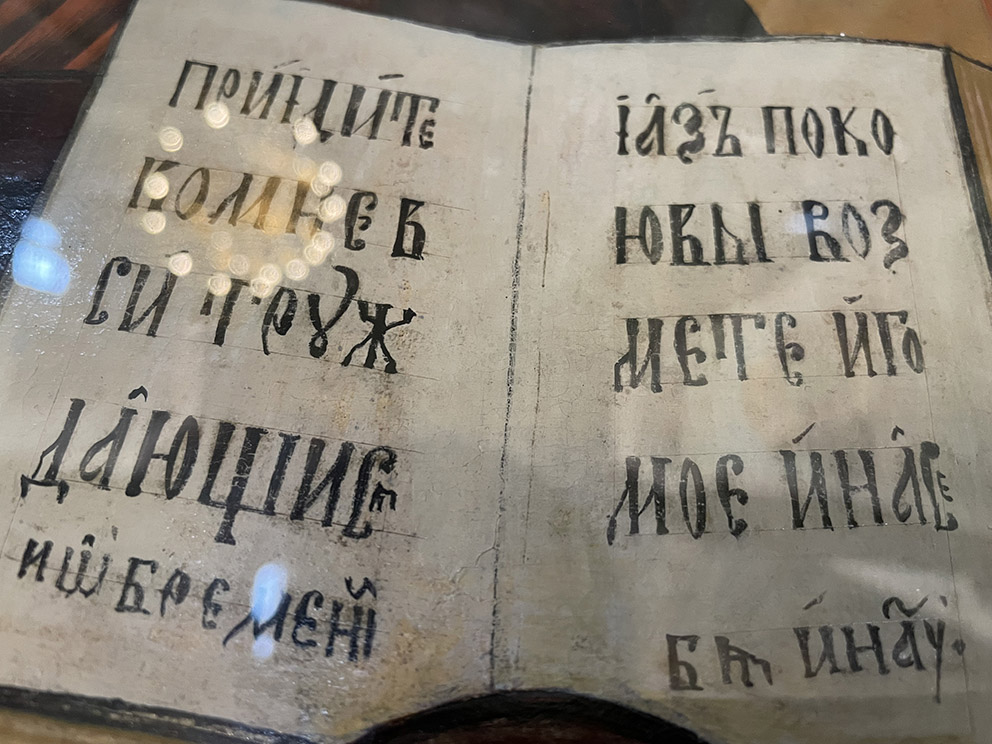 Прїидите
ко мн е в
си труж
дающиис
и ѡбремени
і азъ поко
ю вы воз
мете иго
мое и на се
бѣ и нау